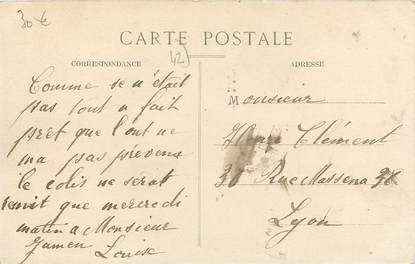 30 €
CARTE POSTALE
42
CORRESPONDANCE
ADRESSE
Comme se n'était
pas tout a fait
prêt que l'ont ne
ma pas prévenu
le colis ne serat
remit que mercredi
matin a Monsieur
Louise
Monsieur
Henri Clément
30 Rue Massena 30
Lyon